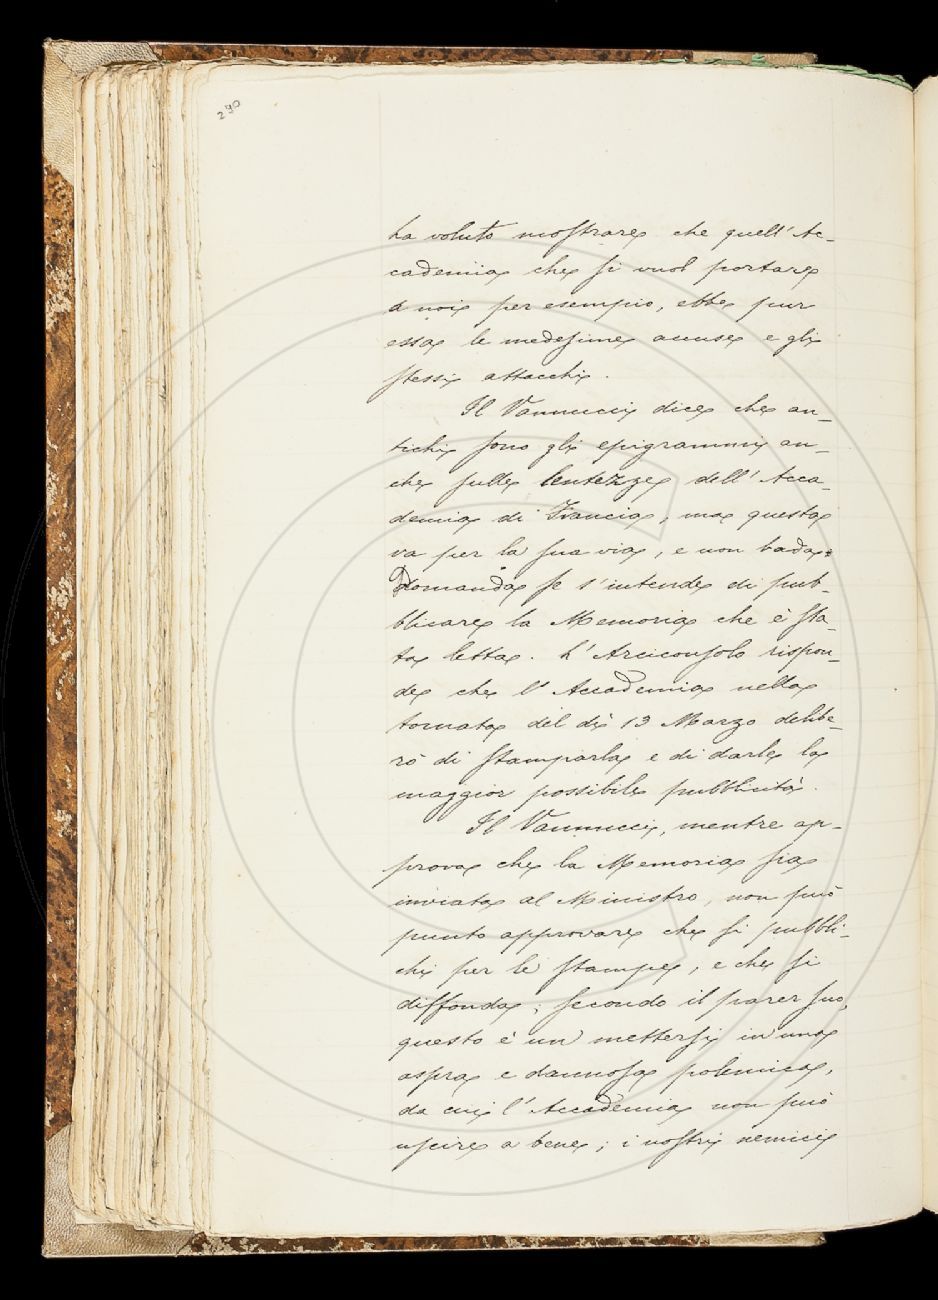 290
ha voluto mostrare che quell'Ac-
cademia che si vuol portare
a noi per esempio, ebbe pur
essa le medesime accuse e gli
stessi attacchi.
Il Vannucci dice che an-
tichi sono gli epigrammi an-
che sulle lentezze dell'Acca-
demia di Francia, ma questa
va per la sua via, e non bada.
Domanda se s'intende di pub-
blicare la Memoria che è sta-
ta letta. L'Arciconsolo rispon-
de che l'Accademia nella
tornata del dì 13 Marzo delibe-
rò di stamparla e di darle la
maggior possibile pubblicità.
Il Vannucci, mentre ap-
prova che la Memoria sia
inviata al Ministro, non può
punto approvare che si pubbli-
chi per le stampe, e che si
diffonda; secondo il parer suo,
questo è un mettersi in una
aspra e dannosa polemica,
da cui l'Accademia non può
uscire a bene; i nostri nemici